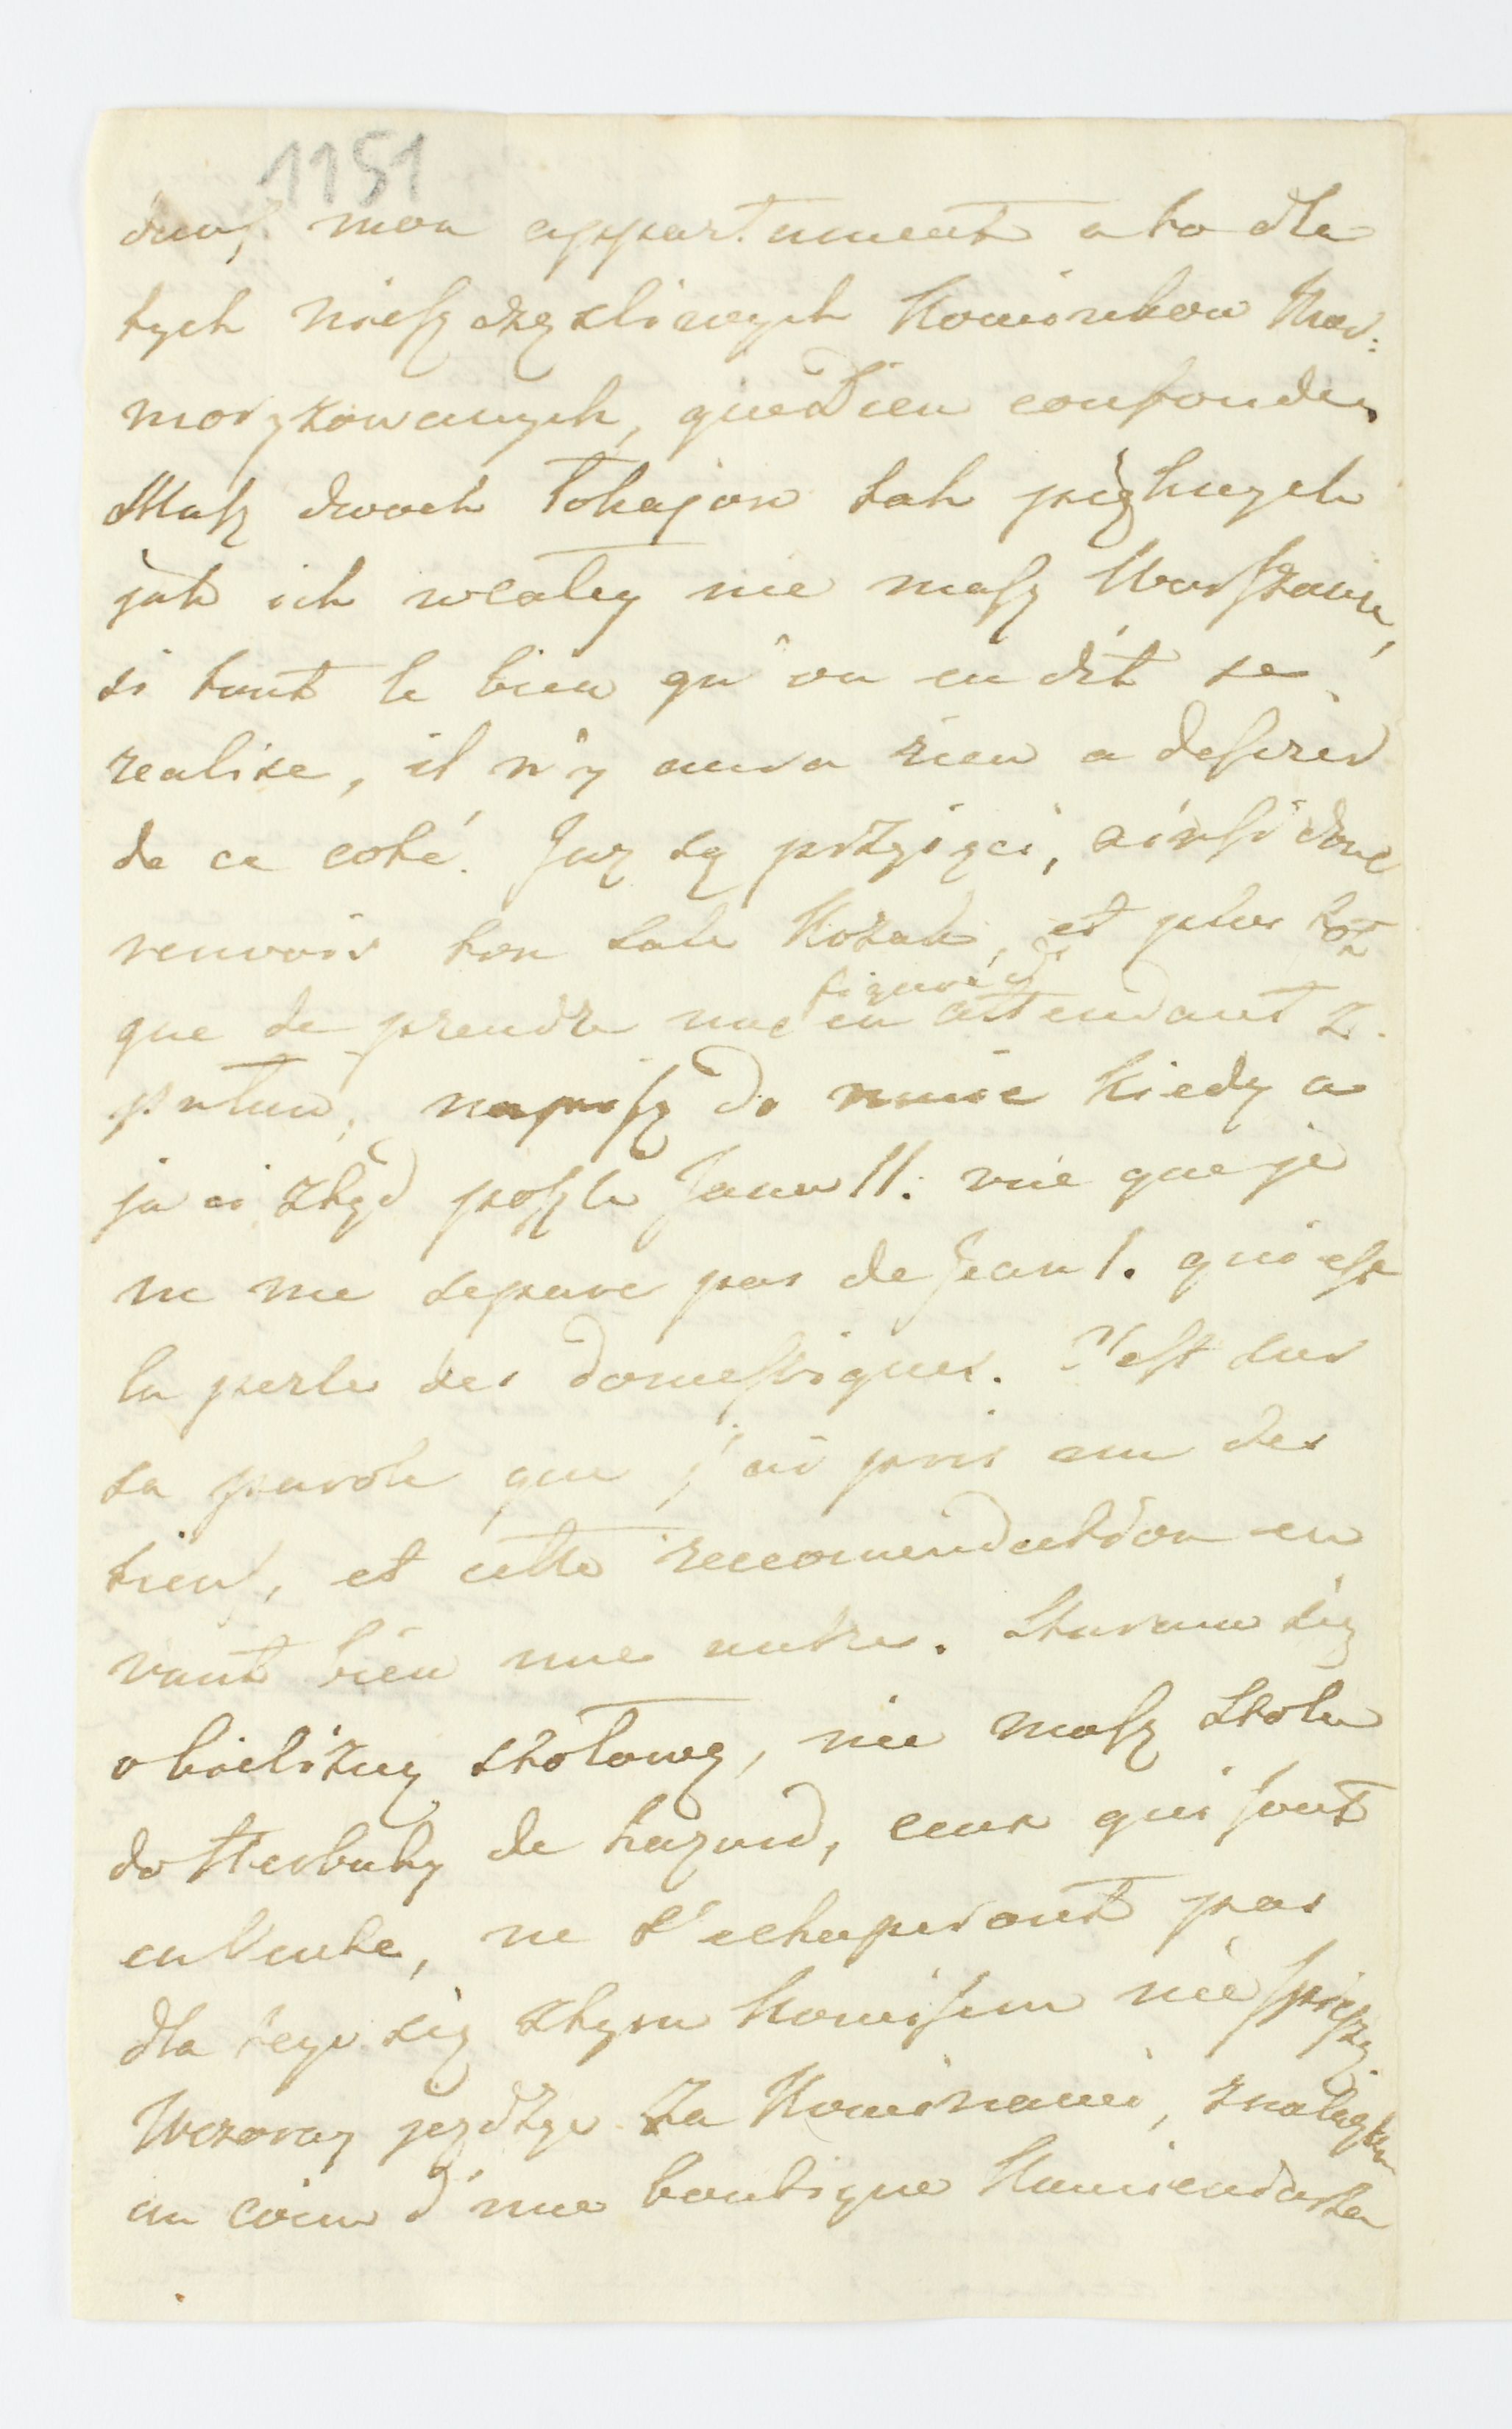 1151
dans mon appartement a to dla
tych nieszczęsliwych Kominkow Mar:
moryzowanych, que Dieu confonde.
Masz dwoch Lokajow tak pięknych
jak ich wcałey nie masz Warszawie,
si tout le bien qu'on en dit se
realise, il n'y aura rien a desirer
de ce coté. Juz są przyięci, ainsi donc
renvois ton sale Kozak, et plus tot
que de prendre une figure
en attendant z.
napisz do mnie kiedy a
ja ci ztąd poszle Jana II. vue que je
ne me separe pas de Jean I. qui est
la perle des domestiques. C'est sur
sa parole que j'ai pris un des
tiens, et cette reccomendation en
vaut bien une autre. Staram się
o bieliznę stołową, nie masz stołu
do Herbaty de hazard, ceux qui sont
en Vente, ne s'echaperont pas
dla tego się ztym Komisem nie spieszę.
Wczoray jeżdżąc za Kominami, znalazłem
au coin d'une boutique Kamieniarka